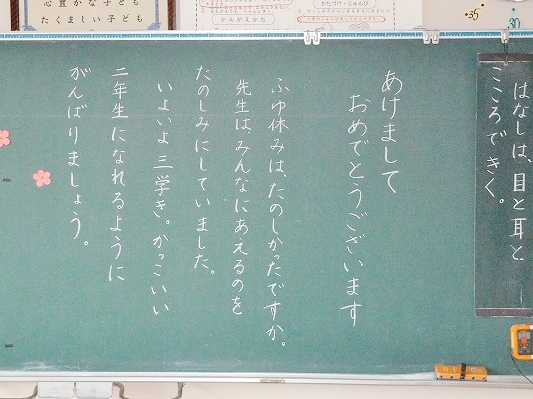 心豊かな子ども
たくましい子ども
かんがえかた
かたづけ・じゅんび
35
30
はなしは、目と耳と
こころできく。
あけまして
おめでとうございます
ふゆ休みは、たのしかったですか。
先生は、みんなにあえるのを
たのしみにしていました。
いよいよ三学き。かっこいい
二年生になれるように
がんばりましょう。